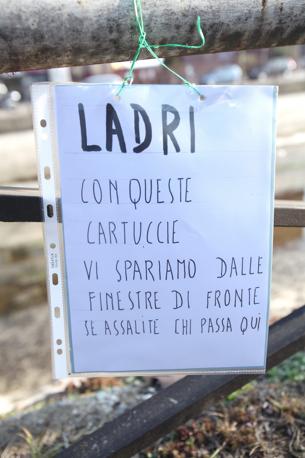 LADRI
CON QUESTE
CARTUCCIE
VI SPARIAMO DALLE
FINESTRE DI FRONTE
SE ASSALITE CHI PASSA QUI